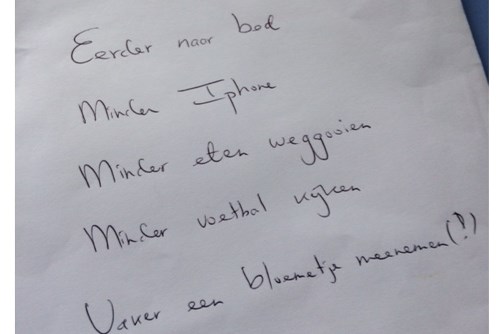 Eerder naar bed
Minder Iphone
Minder eten weggooien
Minder voetbal kijken
Vaker een bloemetje meenemen(?)